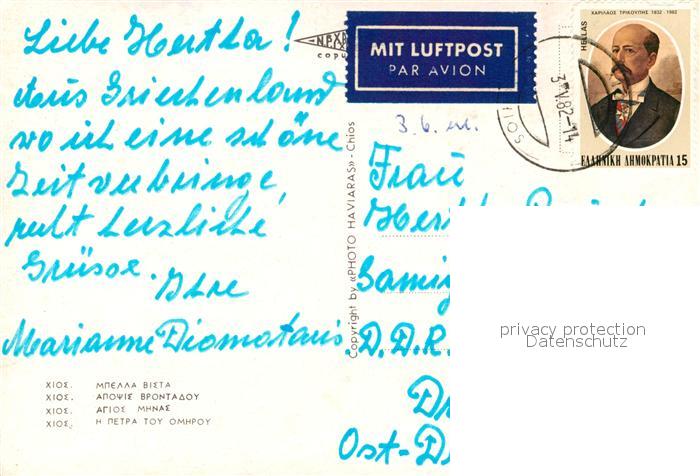 Liebe Hertha!
Aus Griechenland
wo ich eine schöne
Zeit verbringe,
recht herzliche
Grüsse.
Ihre
Marianne Diamataris.
ΧΙΟΣ. ΜΠΕΛΛΑ ΒΙΣΤΑ
ΧΙΟΣ. ΑΠΟΨΙΣ ΒΡΟΝΤΑΔΟΥ
ΧΙΟΣ. ΑΓΙΟΣ ΜΗΝΑΣ
ΧΙΟΣ. Η ΠΕΤΡΑ ΤΟΥ ΟΜΗΡΟΥ
Copyright by «PHOTO HAVIARAS» - Chios
MIT LUFTPOST
PAR AVION
ΧΑΡΙΛΑΟΣ ΤΡΙΚΟΥΠΗΣ 1832 - 1982
HELLAS
ΕΛΛΗΝΙΚΗ ΔΗΜΟΚΡΑΤΙΑ 15
3.V.82-14
3.6.
Frau
D.D.R.
Ost-
privacy protection
Datenschutz